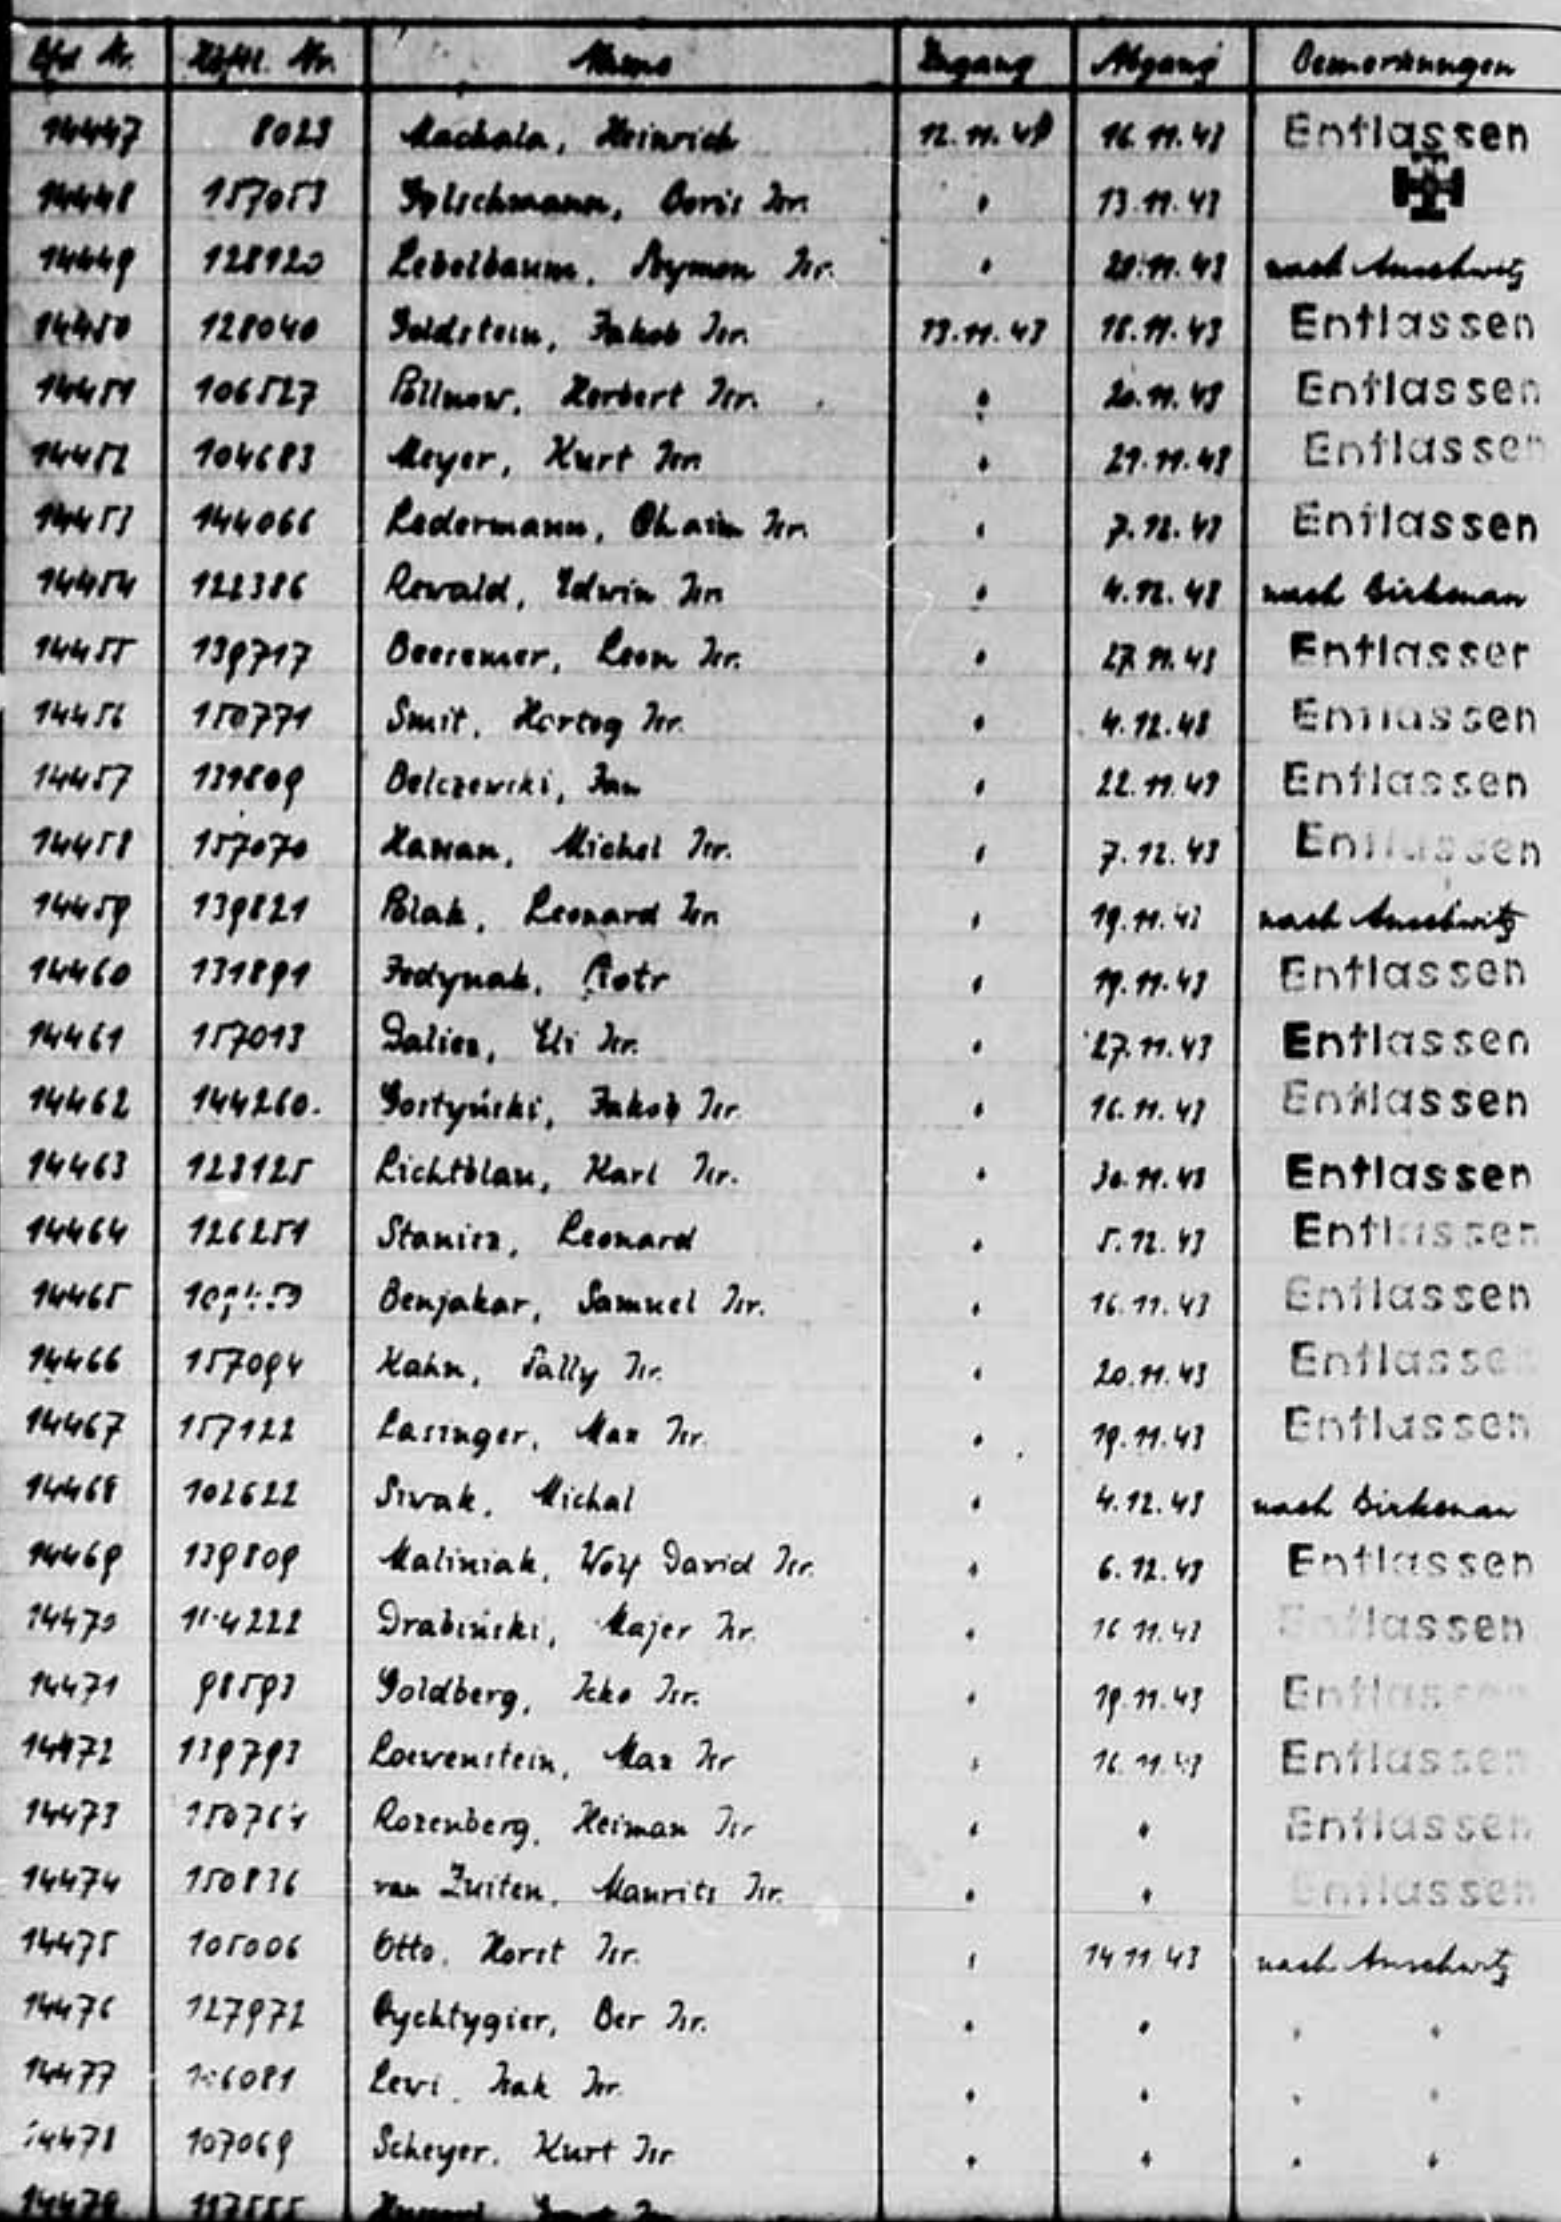 Lfd Nr. Häftl. Nr. Name Zugang Abgang Bemerkungen
14447 8023 Machala, Heinrich 12.11.43 16.11.43 Entlassen
14448 157053 Golschmann, Boris Isr. " 13.11.43
14449 128120 Lebelbaum, Szymon Isr. " 20.11.43 nach Auschwitz
14450 128040 Goldstein, Jakob Isr. 13.11.43 18.11.43 Entlassen
14451 106527 Pollnow, Herbert Isr. " 20.11.43 Entlassen
14452 104683 Meyer, Kurt Isr. " 29.11.43 Entlassen
14453 144066 Ledermann, Chaim Isr. " 7.12.43 Entlassen
14454 122386 Rewald, Edwin Isr. " 4.12.43 nach Birkenau
14455 139717 Beeremer, Leon Isr. " 27.11.43 Entlassen
14456 150771 Smit, Hartog Isr. " 4.12.43 Entlassen
14457 131809 Belczewski, Jan " 22.11.43 Entlassen
14458 157070 Hassan, Michel Isr. " 7.12.43 Entlassen
14459 139821 Polak, Leonard Isr. " 19.11.43 nach Auschwitz
14460 131891 Fedynak, Piotr " 19.11.43 Entlassen
14461 157013 Dalien, Eli Isr. " 27.11.43 Entlassen
14462 144260. Gostyński, Jakob Isr. " 16.11.43 Entlassen
14463 123125 Lichtblau, Karl Isr. " 30.11.43 Entlassen
14464 126251 Stanisz, Leonard " 5.12.43 Entlassen
14465 Benjakar, Samuel Isr. " 16.11.43 Entlassen
14466 157094 Kahn, Sally Isr. " 20.11.43 Entlassen
14467 157122 Lasinger, Max Isr. " 19.11.43 Entlassen
14468 102622 Siwak, Michal " 4.12.43 nach Birkenau
14469 139809 Maliniak, Wolf David Isr. " 6.12.43 Entlassen
14470 Drabiński, Majer Isr. " 16.11.43 Entlassen
14471 98593 Goldberg, Icko Isr. " 19.11.43 Entlassen
14472 139793 Loewenstein, Max Isr " 16.11.43 Entlassen
14473 150764 Rozenberg, Heiman Isr " " Entlassen
14474 150836 van Zuiten, Maurits Isr. " " Entlassen
14475 105006 Otto, Horst Isr. " 14.11.43 nach Auschwitz
14476 127972 Rychtygier, Ber Isr. " " " "
14477 Lewi, Isak Isr. " " " "
14478 107069 Scheyer, Kurt Isr " " " "
14479 117555